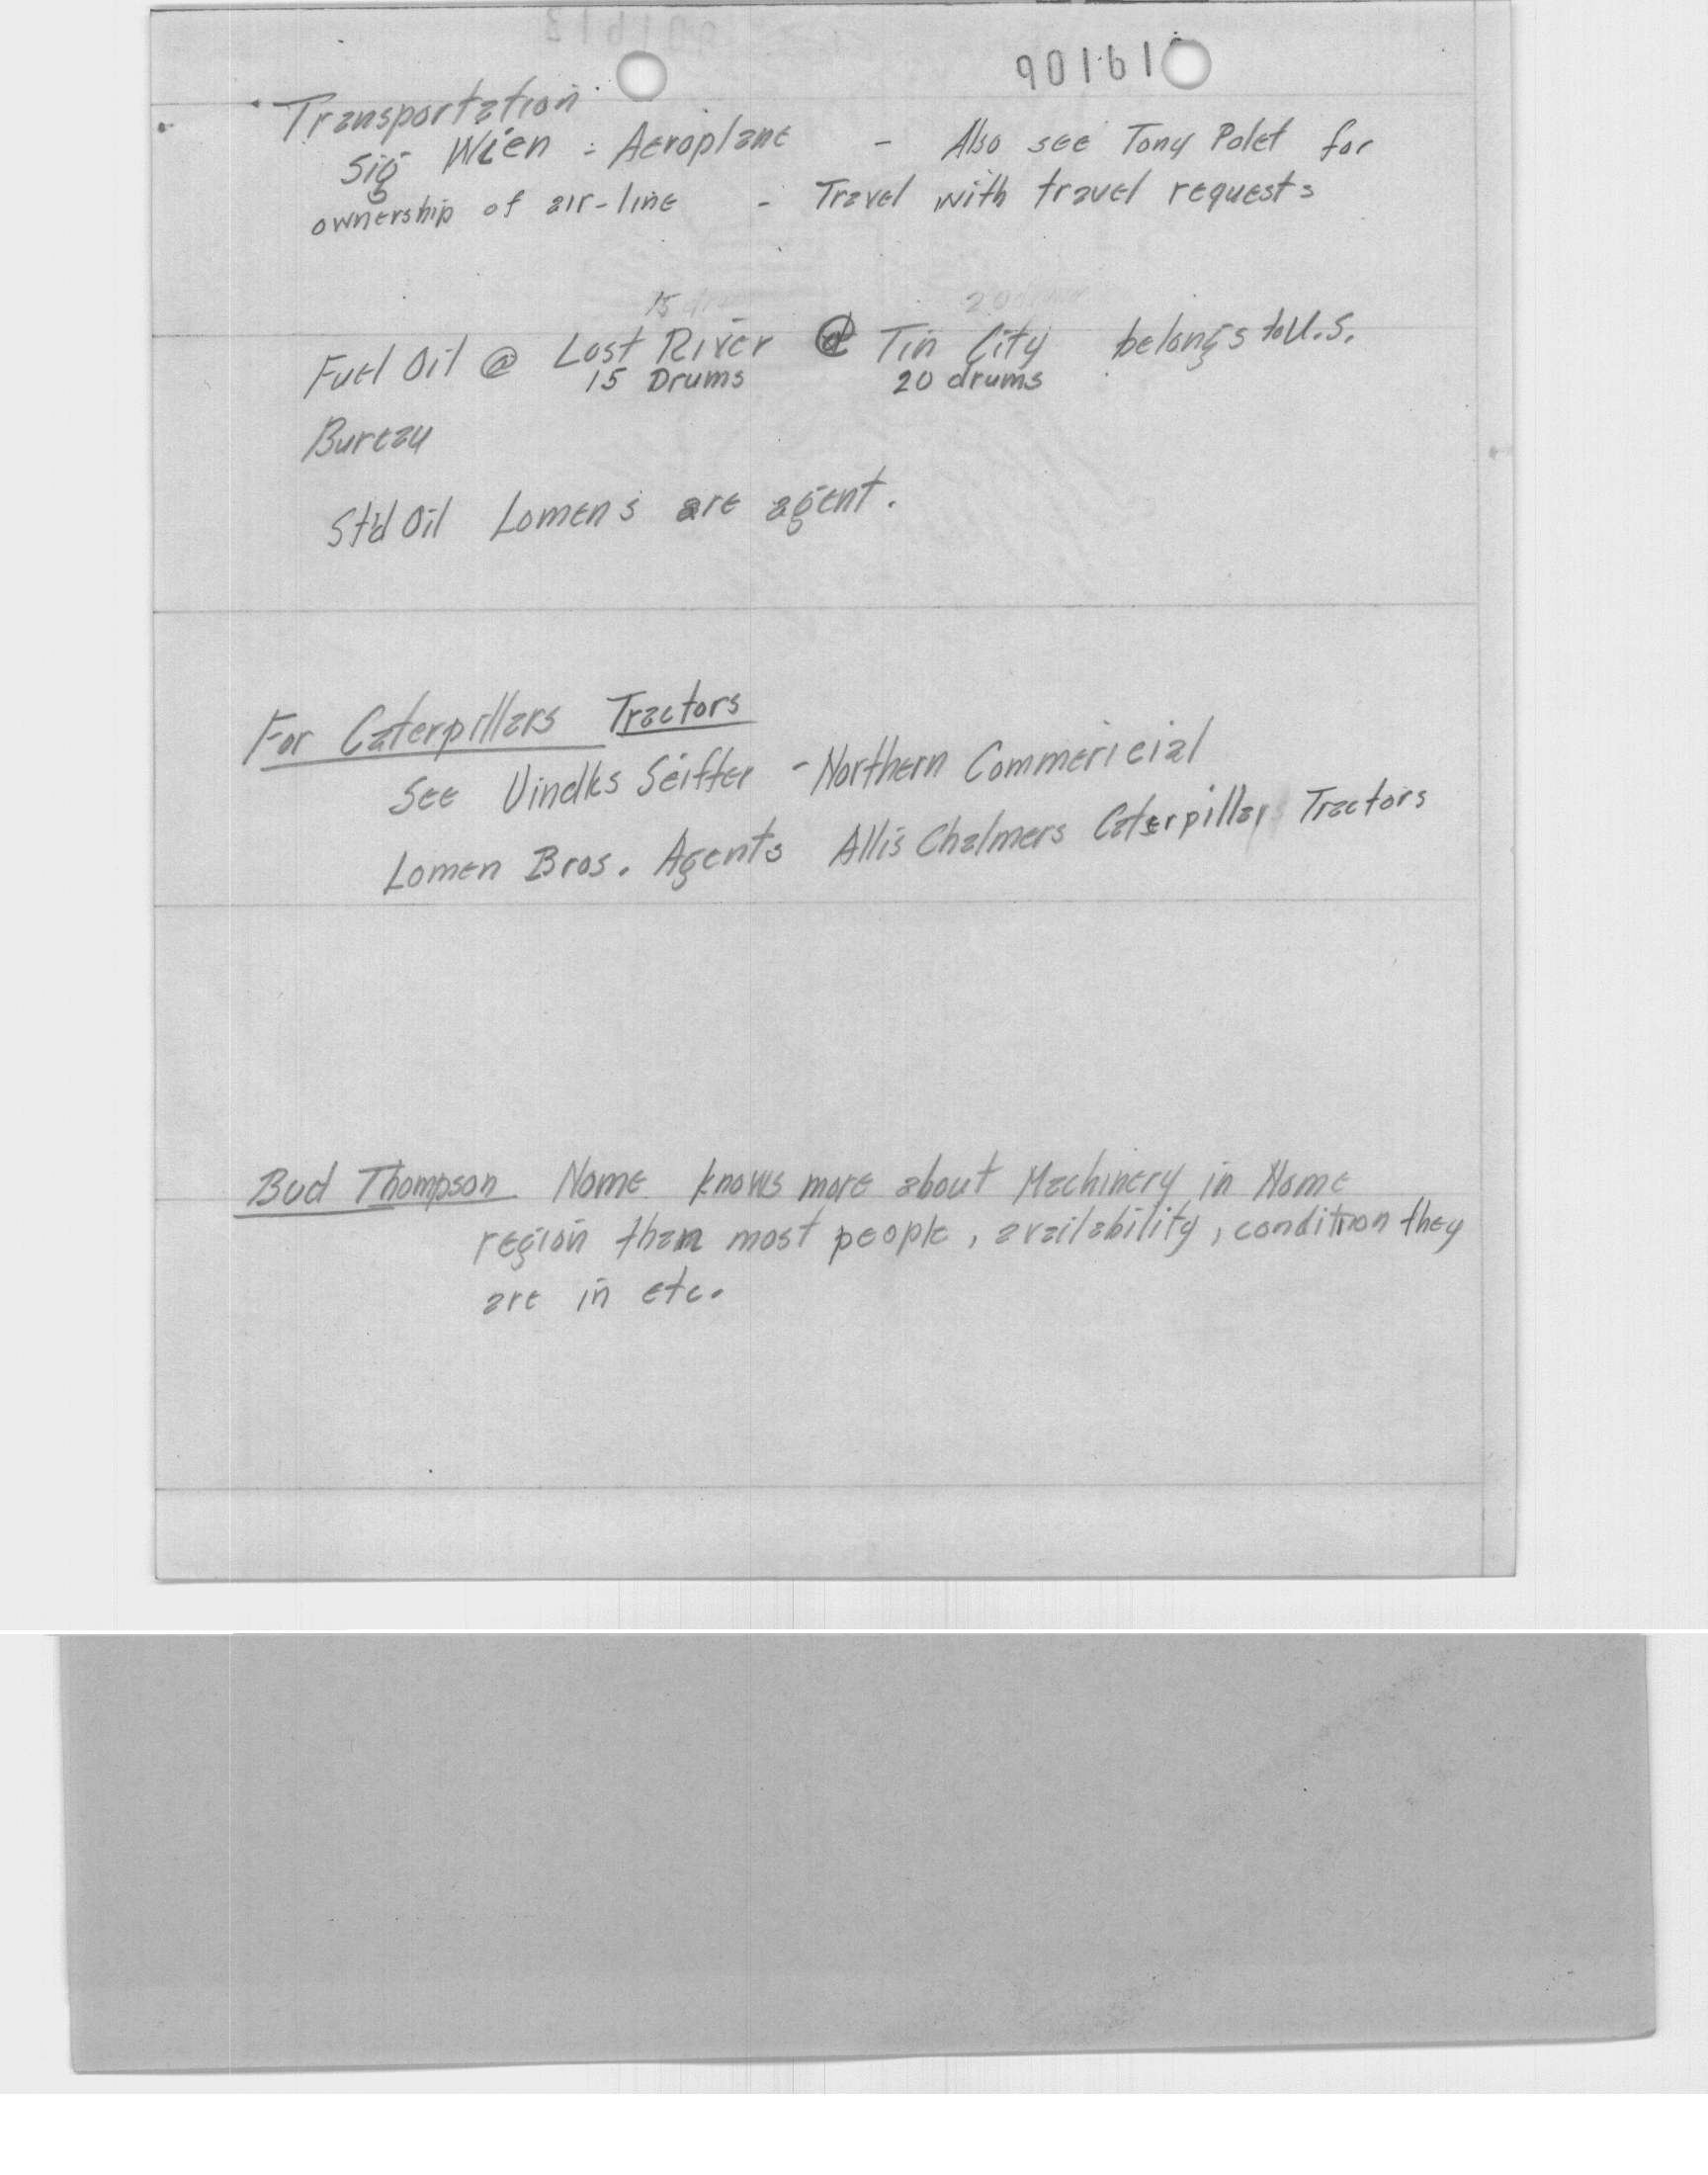 90161
Transportation
Sig Wien - Aeroplane - Also see Tony Polet for
ownership of air-line - Travel with travel requests
15 20
Fuel Oil @ Lost River @ Tin City belongs to U.S.
15 Drums 20 drums
Bureau
St'd Oil Lomens are agent.
For Caterpillars Tractors
See Seiffer - Northern Commericial
Lomen Bros. Agents Allis Chalmers Caterpillar Tractors
Bud Thompson Nome knows more about Machinery in Nome
region than most people, availability, condition they
are in etc.